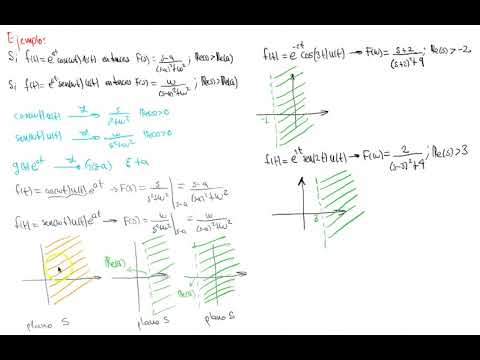 Ejemplo:
Si f(t)=e^{at} cos(ωt) u(t) entonces F(s)= \frac{s-a}{(s-a)^2+ω^2}; Re(s)>Re(a)
Si f(t)=e^{at} sen(ωt) u(t) entonces F(s)= \frac{ω}{(s-a)^2+ω^2}; Re(s)>Re(a)
cos(ωt) u(t) → \frac{s}{s^2+ω^2} Re(s)>0
sen(ωt) u(t) → \frac{ω}{s^2+ω^2} Re(s)>0
g(t)e^{at} → G(s-a)
f(t)=cos(ωt)u(t)e^{at} → F(s)= \frac{s}{s^2+ω^2}|_{s-a} = \frac{s-a}{(s-a)^2+ω^2}
f(t)=sen(ωt)u(t)e^{at} → F(s)= \frac{ω}{s^2+ω^2}|_{s-a} = \frac{ω}{(s-a)^2+ω^2}
Re(a)
Re(a)
plano S
plano S
plano S
cos(3t)u(t) → F(ω)= \frac{s+2}{(s+2)^2+9}; Re(s)>-2
-2
sen(2t)u(t) → F(ω)= \frac{2}{(s-3)^2+4}; Re(s)>3
3